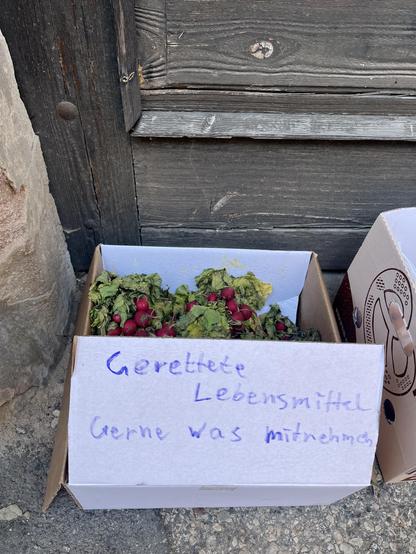 Gerettete
Lebensmittel
Gerne was mitnehmen